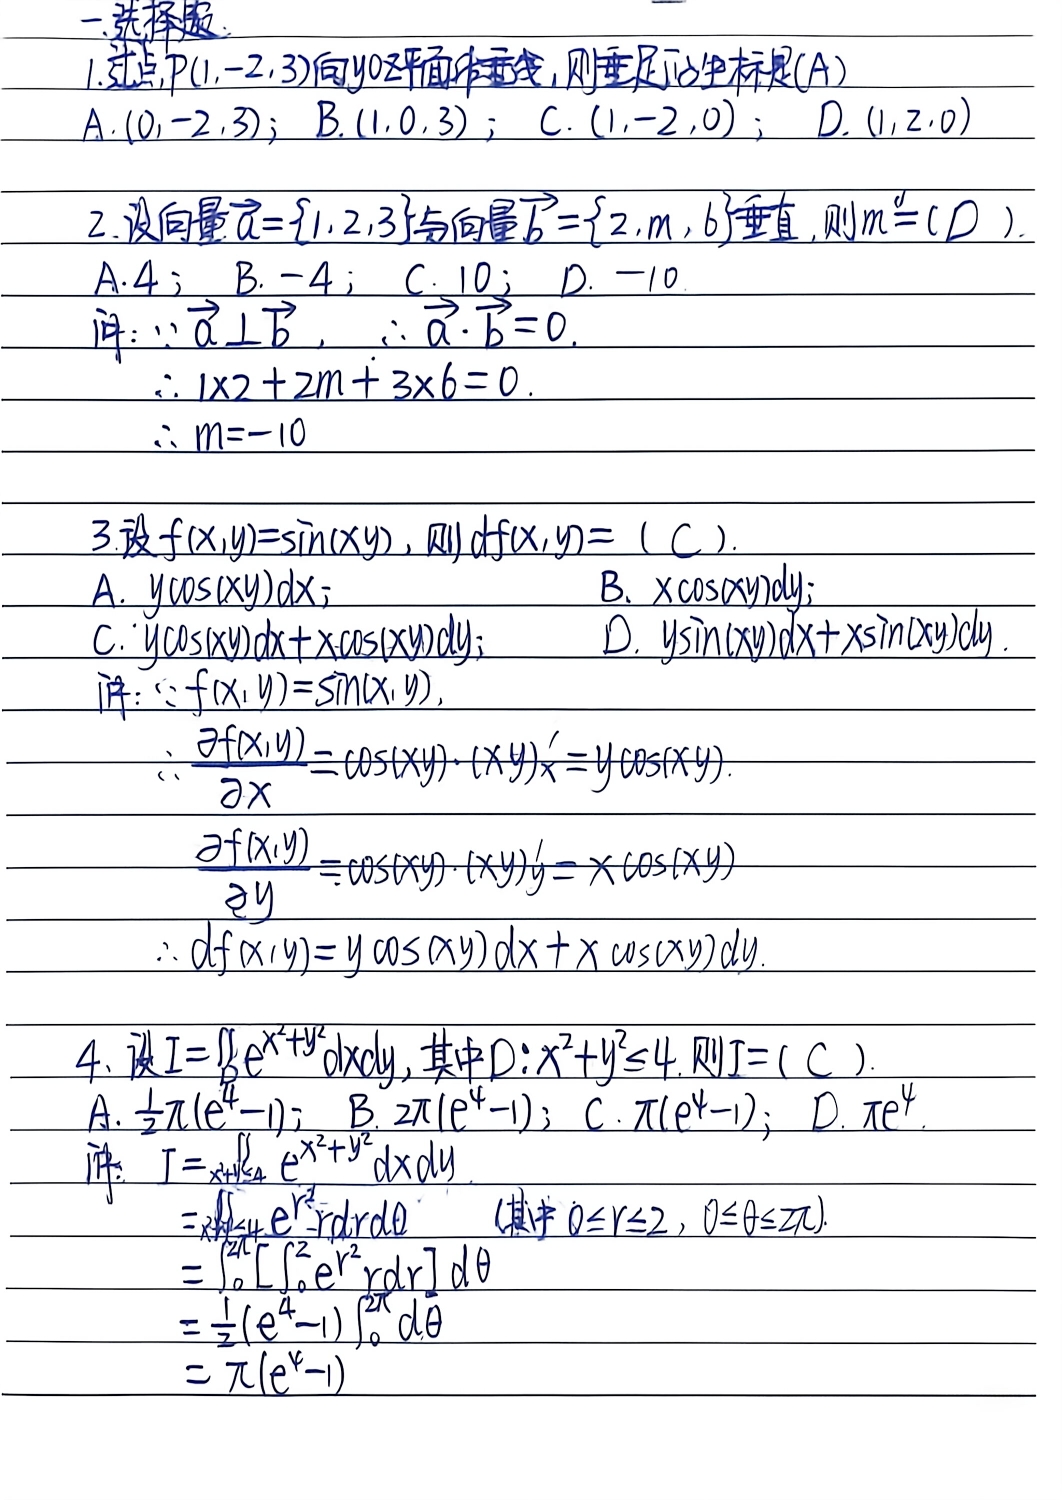 一.选择题.
1.过点P(1,-2,3)向yOz平面作垂线,则垂足的坐标是(A)
A.(0,-2,3); B.(1,0,3); C.(1,-2,0); D.(1,2,0)
2.设向量a⃗={1,2,3}与向量b⃗={2,m,6}垂直,则m=(D).
A.4; B.-4; C.10; D.-10.
解:∵a⃗⊥b⃗, ∴a⃗·b⃗=0.
∴1×2+2m+3×6=0.
∴m=-10
3.设f(x,y)=sin(xy),则df(x,y)=(C).
A. ycos(xy)dx; B. xcos(xy)dy;
C. ycos(xy)dx+xcos(xy)dy; D. ysin(xy)dx+xsin(xy)dy.
解:∵f(x,y)=sin(x,y),
∴∂f(x,y)/∂x=cos(xy)·(xy)'ₓ=ycos(xy).
∂f(x,y)/∂y=cos(xy)·(xy)'y=xcos(xy)
∴df(x,y)=ycos(xy)dx+xcos(xy)dy.
4.设I=∬_D e^(x²+y²)dxdy,其中D:x²+y²≤4.则I=(C).
A. ½π(e⁴-1); B. 2π(e⁴-1); C. π(e⁴-1); D. πe⁴.
解: I=∬_(x²+y²≤4) e^(x²+y²)dxdy
=∬_(x²+y²≤4) e^(r²)·rdrdθ (其中0≤r≤2,0≤θ≤2π).
=∫₀^(2π)[∫₀²e^(r²)rdr]dθ
=½(e⁴-1)∫₀^(2π)dθ
=π(e⁴-1)